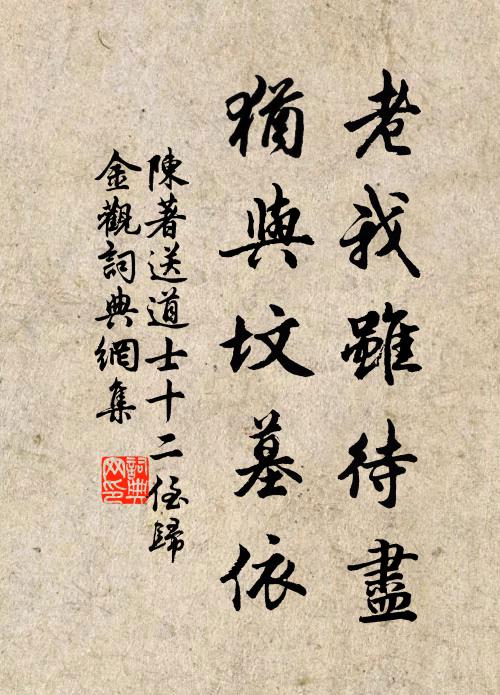 老我雖待盡
猶與墳墓依
陳著送道士十二侄歸
金觀詞典網集
詞典網印